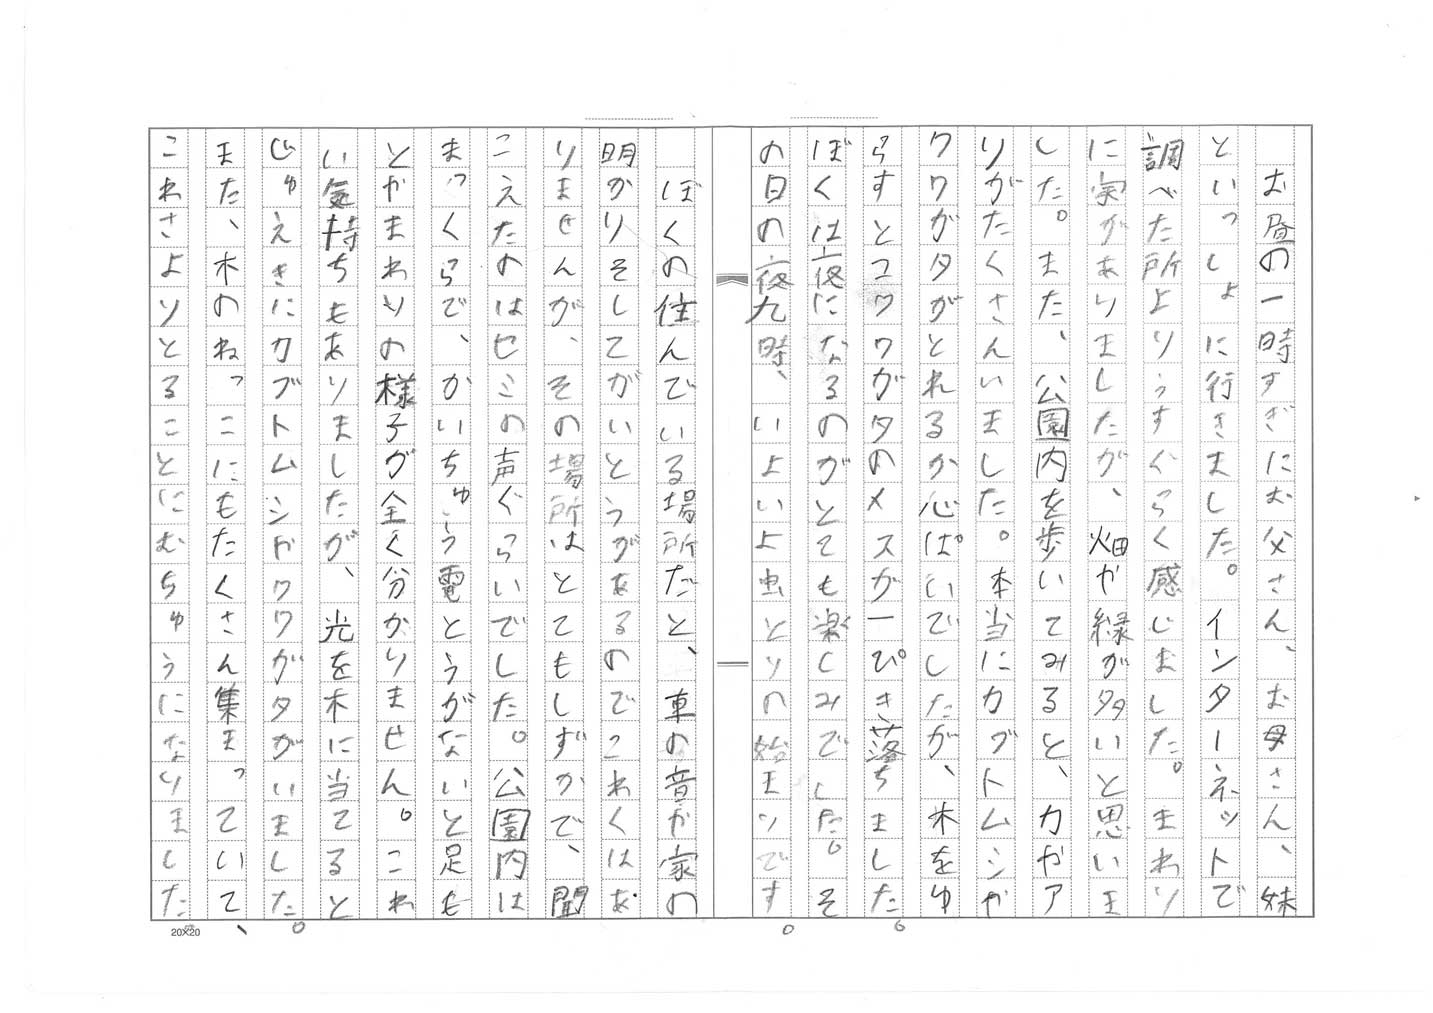 お昼の一時すぎにお父さん、お母さん、妹
といっしょに行きました。インターネットで
調べた所よりうすぐらく感じました。まわり
に実がありましたが、畑や緑が多いと思いま
した。また、公園内を歩いてみると、カやア
リがたくさんいました。本当にカブトムシや
クワガタがとれるか心ぱいでしたが、木をゆ
らすとコクワガタのメスが一ぴき落ちました。
ぼくは夜になるのがとても楽しみでした。そ
の日の夜九時、いよいよ虫とりの始まりです。
ぼくの住んでいる場所だと、車の音が家の
明かりそしてがいとうがあるのでこわくはあ
りませんが、その場所はとてもしずかで、聞
こえたのはセミの声ぐらいでした。公園内は
まっくらで、かいちゅう電とうがないと足も
とやまわりの様子が全く分かりません。こわ
い気持ちもありましたが、光を木に当てると
じゅえきにカブトムシやクワガタがいました。
また、木のねっこにもたくさん集まっていて、
こわさよりとることにむちゅうになりました
20×20